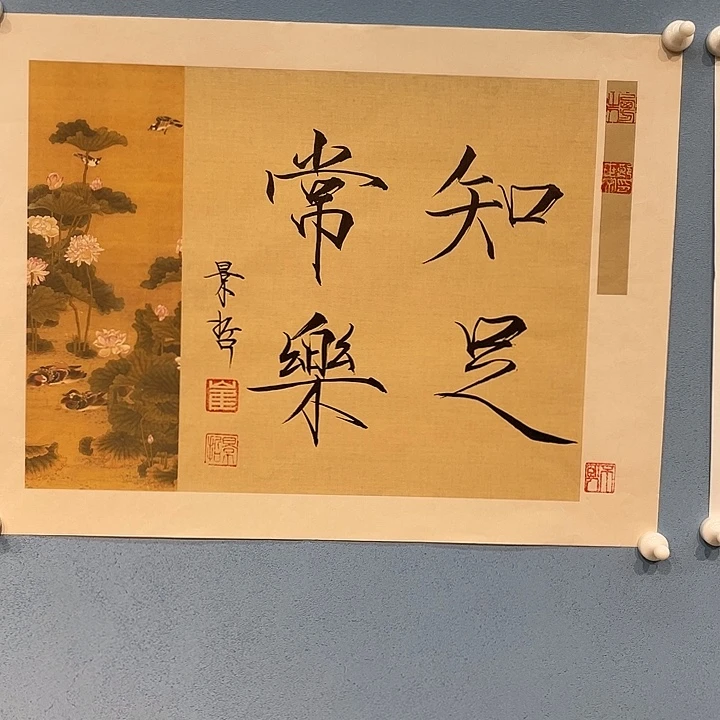 知足
常樂
景哲